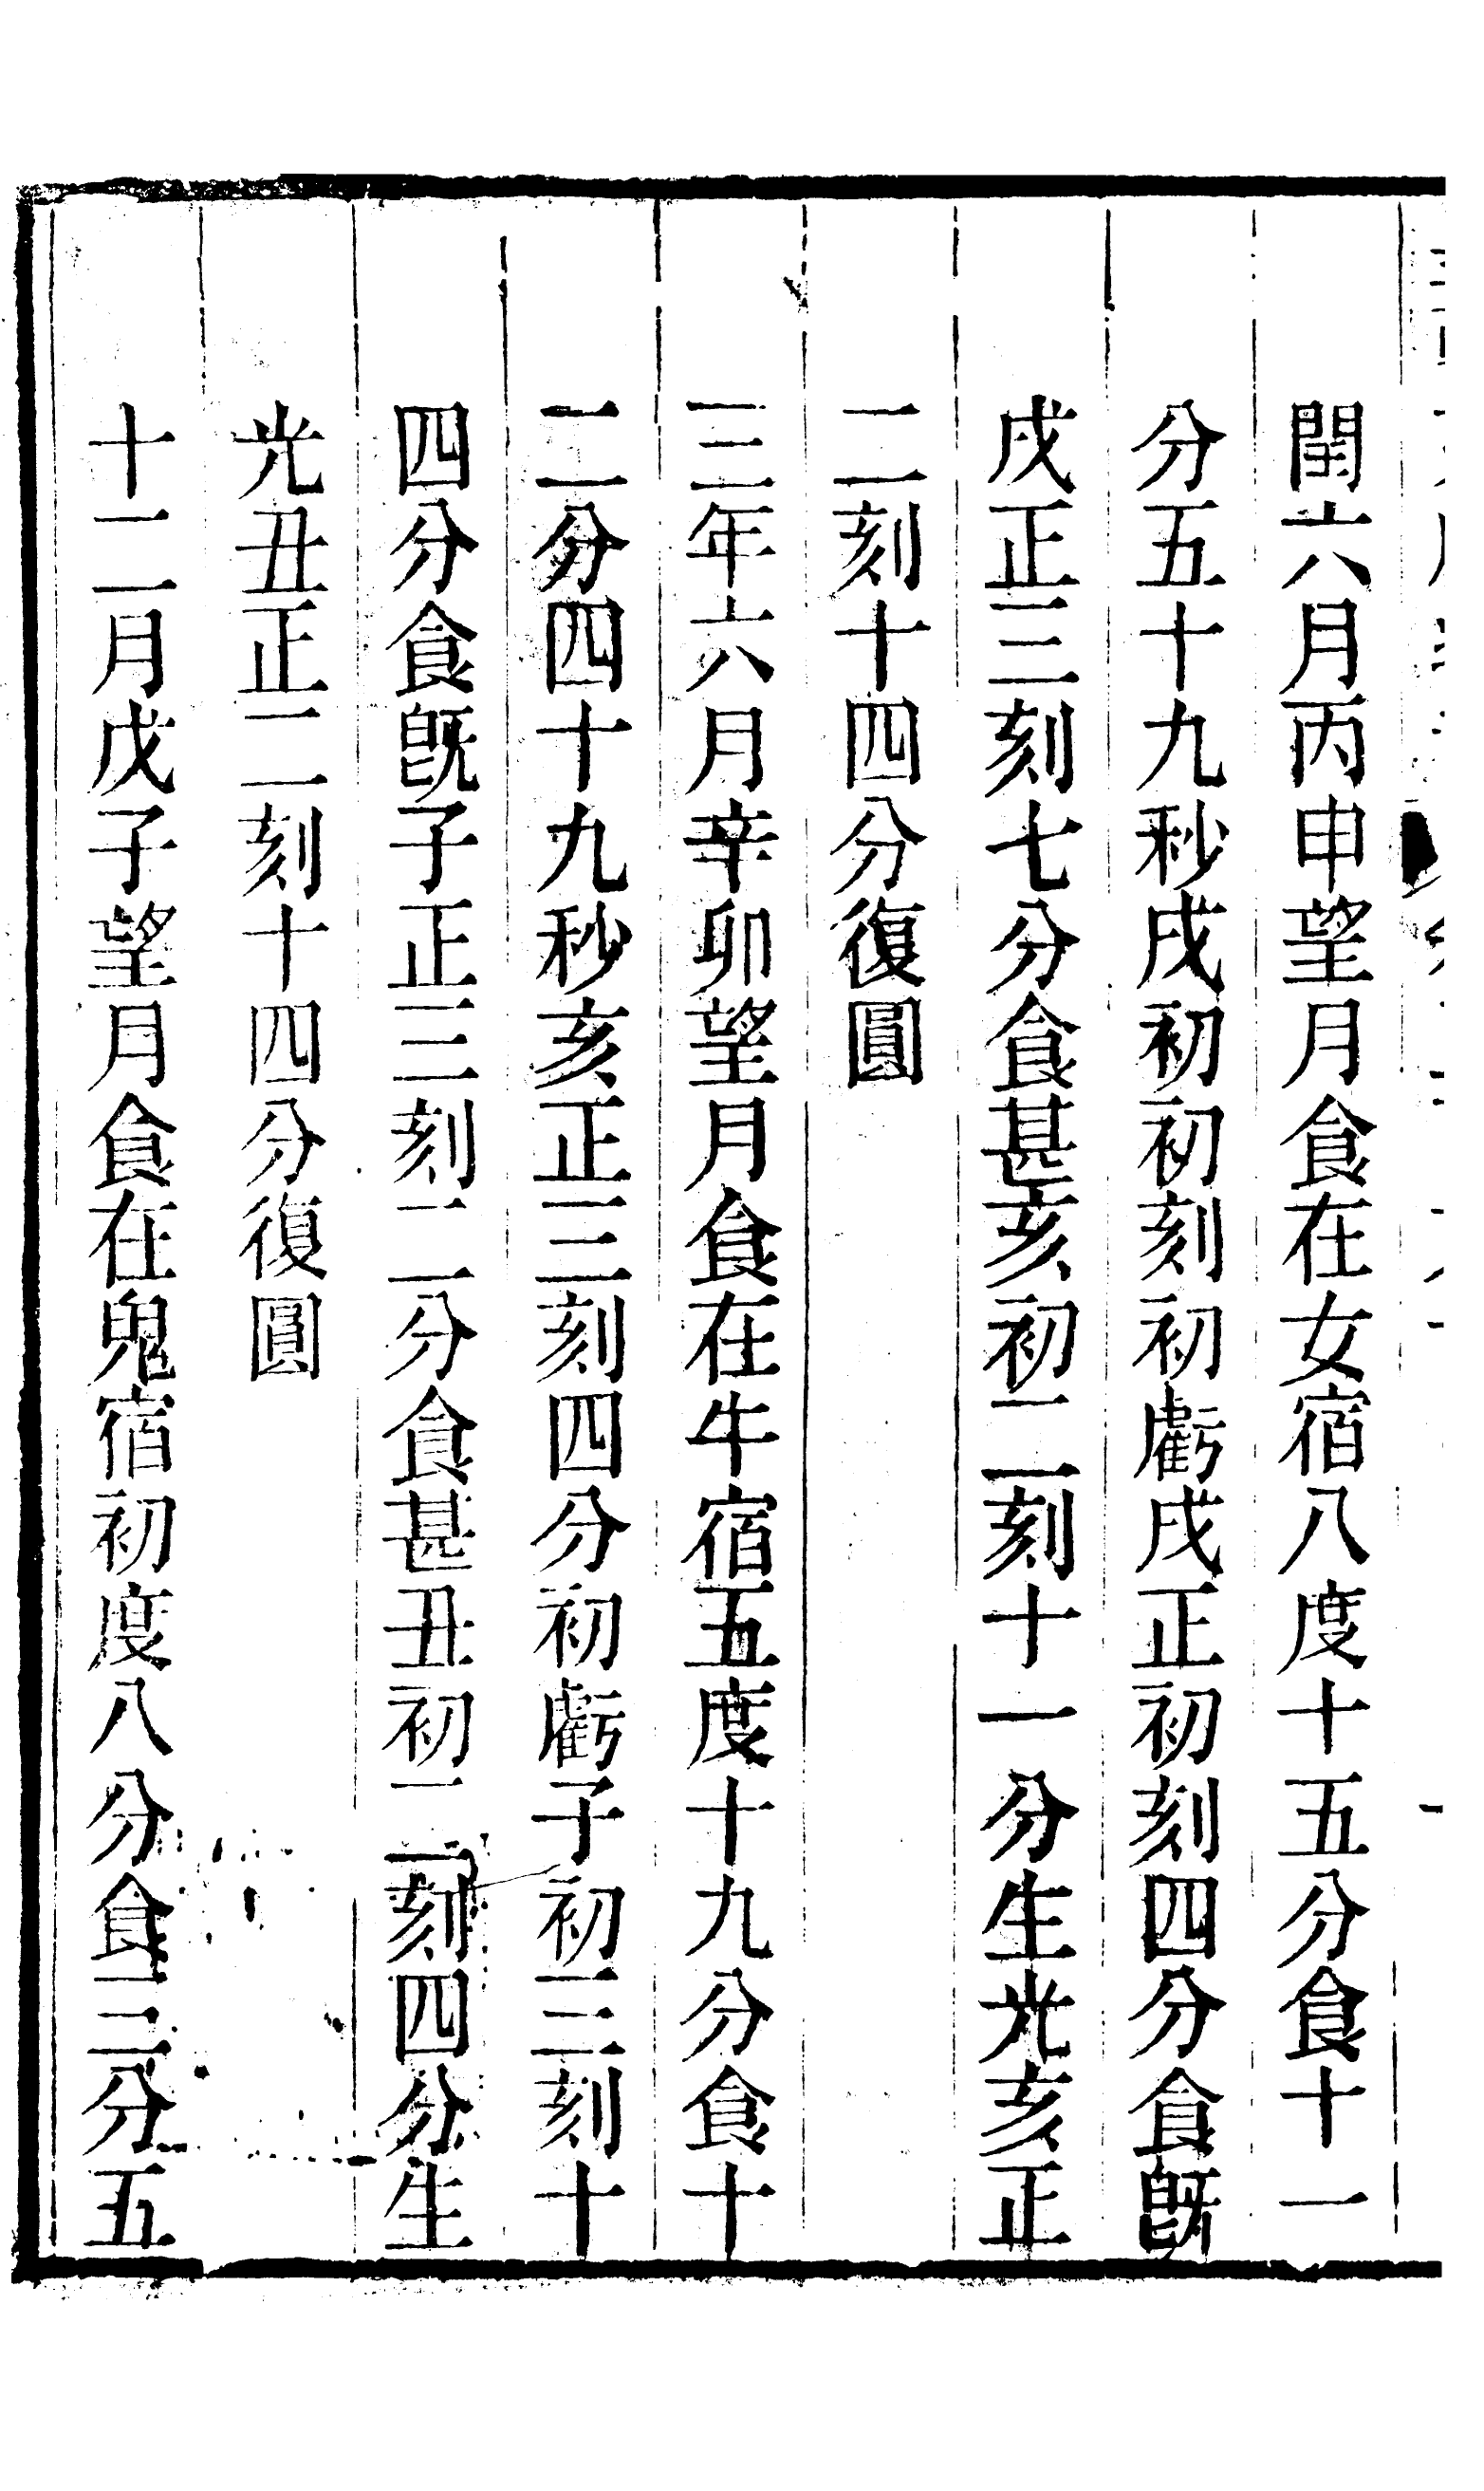 閏六月丙申望月食在女宿八度十五分食十一
分五十九秒戌初初刻初虧戌正初刻四分食旣
戌正三刻七分食甚亥初二刻十一分生光亥正
二刻十四分復圓
三年六月辛卯望月食在牛宿五度十九分食十
二分四十九秒亥正三刻四分初虧子初三刻十
四分食旣子正三刻二分食甚丑初二刻四分生
光丑正二刻十四分復圓
十二月戊子望月食在鬼宿初度八分食三分五